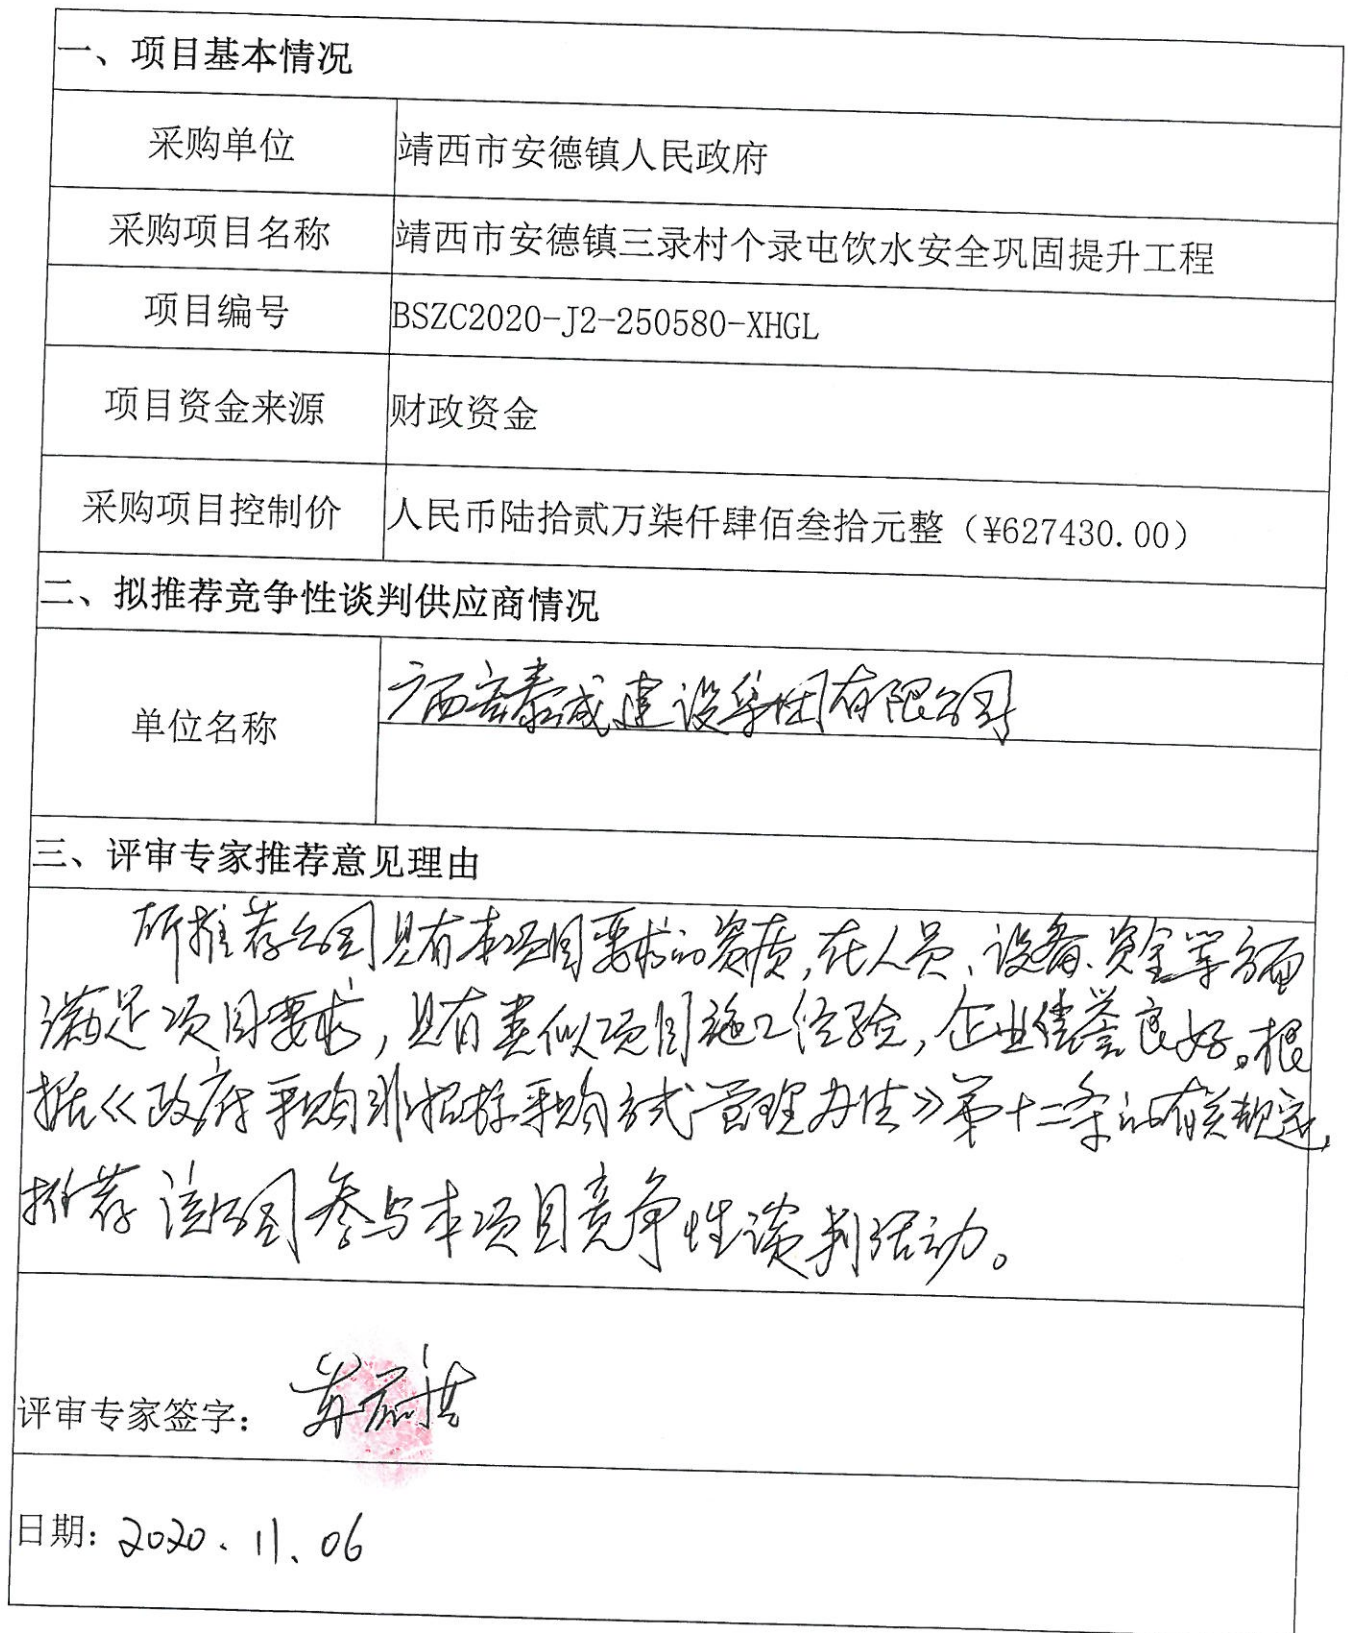 一、项目基本情况
采购单位 靖西市安德镇人民政府
采购项目名称 靖西市安德镇三录村个录屯饮水安全巩固提升工程
项目编号 BSZC2020-J2-250580-XHGL
项目资金来源 财政资金
采购项目控制价 人民币陆拾贰万柒仟肆佰叁拾元整（¥627430.00）
二、拟推荐竞争性谈判供应商情况
单位名称 广西宏泰诚建设集团有限公司
三、评审专家推荐意见理由
所推荐公司具有本项目要求的资质,在人员、设备、资金等方面
满足项目要求,具有类似项目施工经验,企业信誉良好。根
据《政府采购非招标采购方式管理办法》第十二条的有关规定,
推荐该公司参与本项目竞争性谈判活动。
评审专家签字：
日期: 2020.11.06